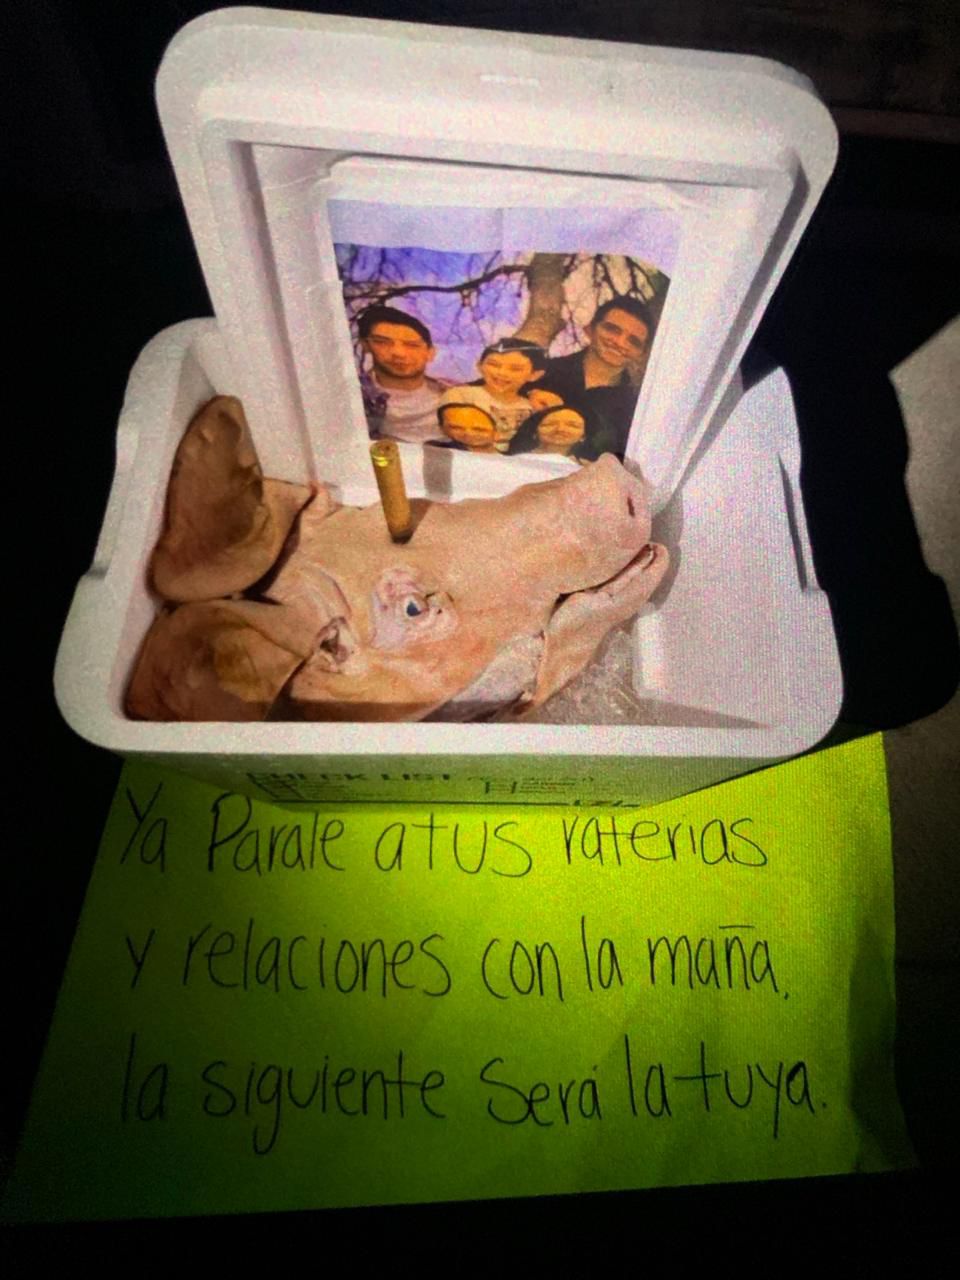 CHECK LIST
Ya Parale a tus raterias
y relaciones con la maña.
la siguiente Será la tuya.